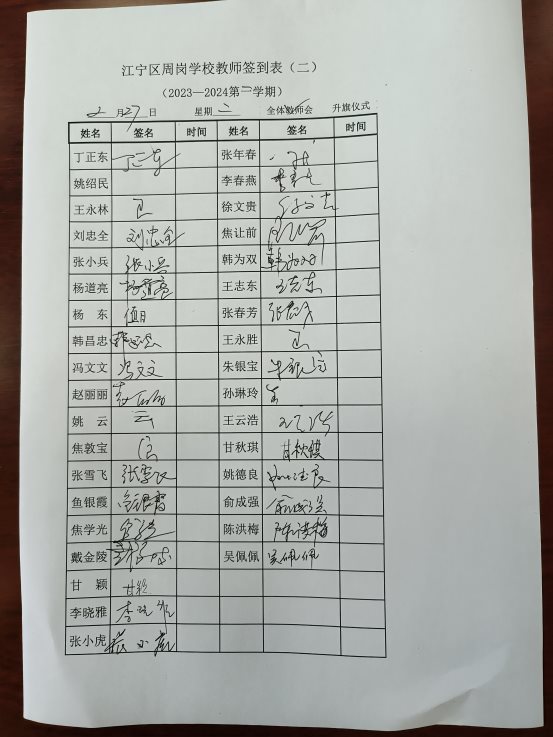 江宁区周岗学校教师签到表（二）
（2023—2024第二学期）
2 月 27 日 星期 二 全体教师会 升旗仪式
姓名 签名 时间 姓名 签名 时间
丁正东 丁正东 张年春
姚绍民 李春燕
王永林 徐文贵 徐文贵
刘忠全 刘忠全 焦让前
张小兵 张小兵 韩为双 韩为双
杨道亮 杨道亮 王志东 王志东
杨东 值日 张春芳 张春芳
韩昌忠 王永胜
冯文文 冯文文 朱银宝 朱银宝
赵丽丽 孙琳玲
姚云 云 王云浩
焦敦宝 甘秋琪 甘秋琪
张雪飞 张雪飞 姚德良 姚德良
鱼银霞 鱼银霞 俞成强 俞成强
焦学光 陈洪梅 陈洪梅
戴金陵 吴佩佩 吴佩佩
甘颖 甘颖
李晓雅 李晓雅
张小虎 张小虎